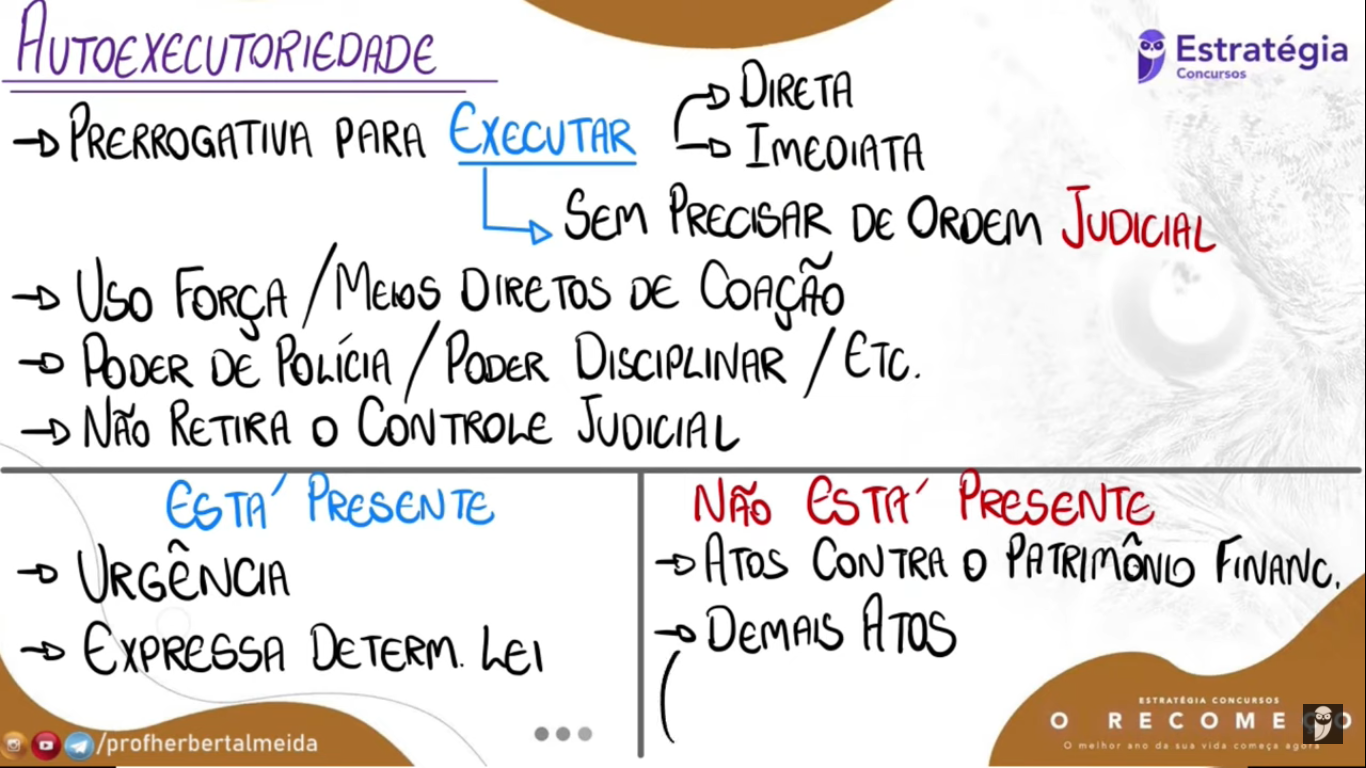 AUTOEXECUTORIEDADE
Estratégia
Concursos
→ PRERROGATIVA PARA EXECUTAR
→ DIRETA
→ IMEDIATA
→ SEM PRECISAR DE ORDEM JUDICIAL
→ USO FORÇA / MEIOS DIRETOS DE COAÇÃO
→ PODER DE POLÍCIA / PODER DISCIPLINAR / ETC.
→ NÃO RETIRA O CONTROLE JUDICIAL
ESTÁ PRESENTE
→ URGÊNCIA
→ EXPRESSA DETERM. LEI
NÃO ESTÁ PRESENTE
→ ATOS CONTRA O PATRIMÔNIO FINANC.
→ DEMAIS ATOS
/profherbertalmeida
ESTRATÉGIA CONCURSOS
O RECOMEÇO
O melhor ano da sua vida começa agora